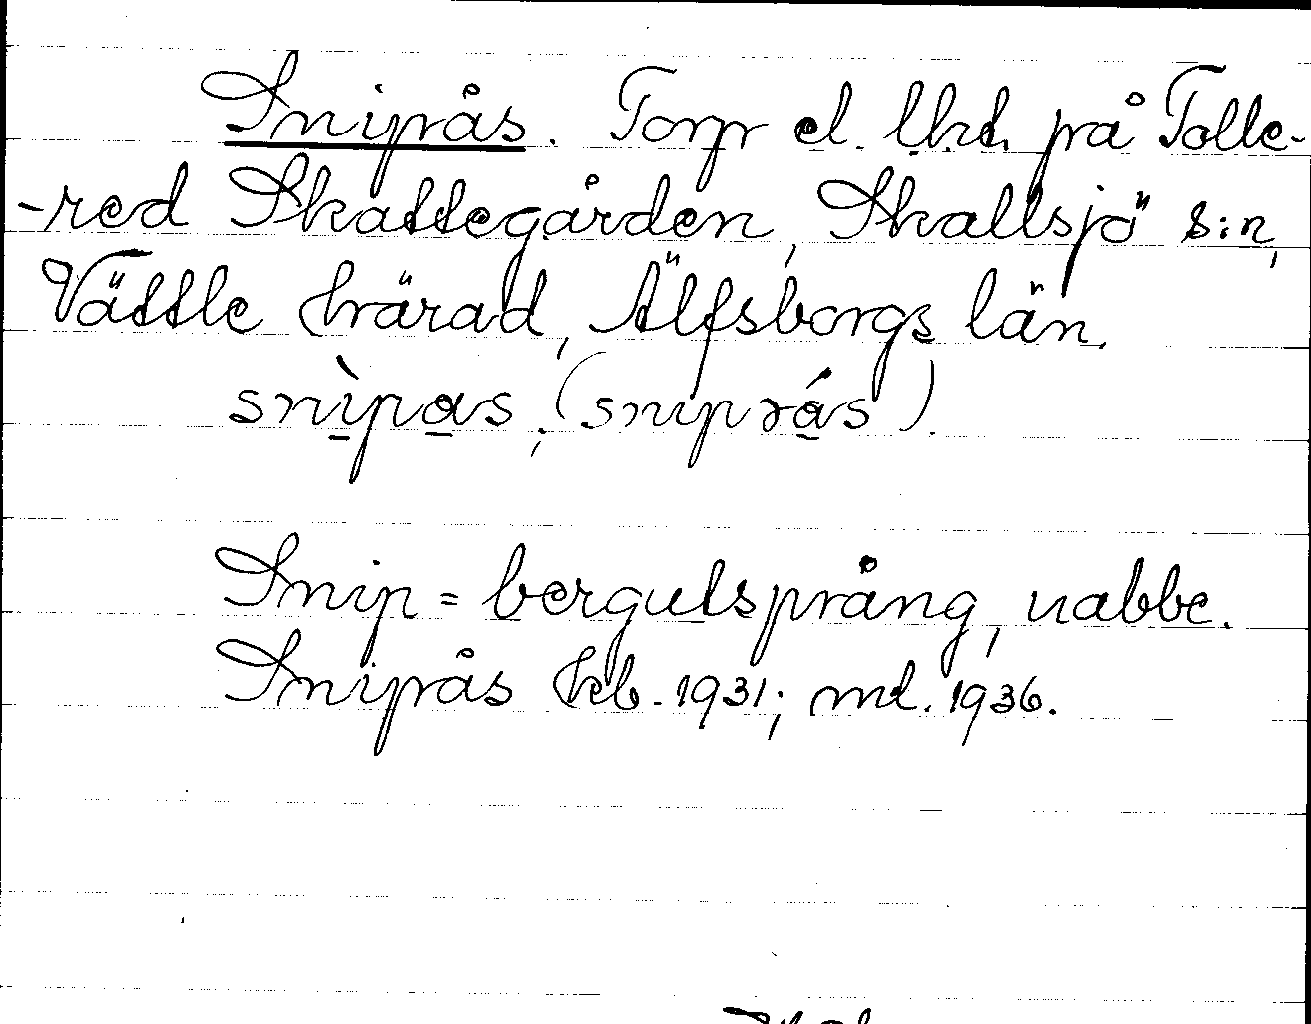 Sniprås. Torp el. lht. på Tolle-
-red Skattegården, Skallsjö s:n,
Vättle härad, Älfsborgs län.
snìpas, (sniprás).
Snip = bergutsprång, nabbe.
Sniprås hfb. 1931; mt. 1936.